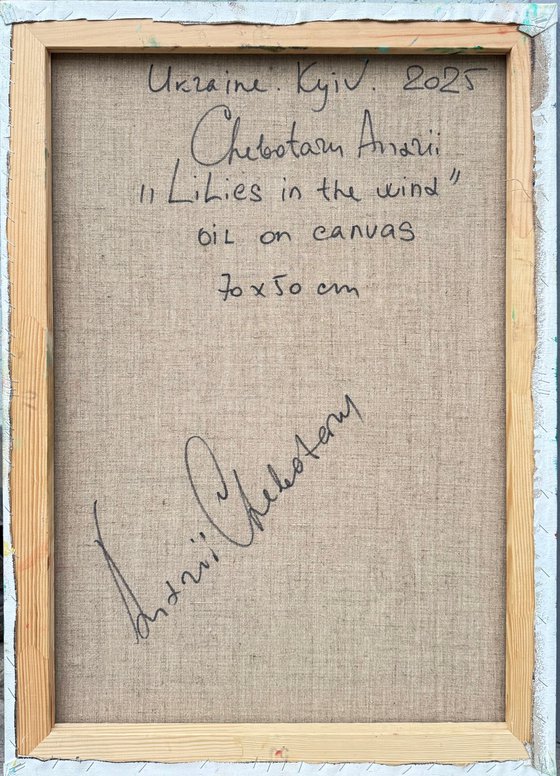 Ukraine. Kyiv. 2025
Chebotaru Andrii
"Lilies in the wind"
oil on canvas
70x50 cm
Andrii Chebotaru